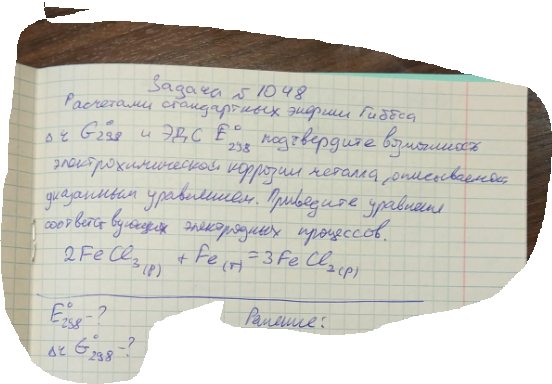 Задача № 1048
Расчетами стандартных энергии Гиббса
Δч G°298 и ЭДС E°298 подтвердите возможность
электрохимической коррозии металла, описываемой
указанным уравнением. Приведите уравнения
соответствующих электродных процессов.
2FeCl3(р) + Fe(т) = 3FeCl2(р)
E°298 - ?
Решение:
Δч G°298 - ?